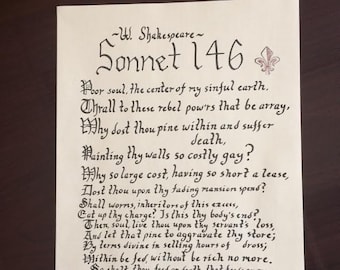 ~W. Shakespeare~
Sonnet 146
Poor soul, the center of my sinful earth,
Thrall to these rebel pow'rs that be array,
Why dost thou pine within and suffer
death,
Painting thy walls so costly gay?
Why so large cost, having so short a lease,
Dost thou upon thy fading mansion spend?
Shall worms, inheritors of this excess,
Eat up thy charge? Is this thy body's end?
Then, soul, live thou upon thy servant's loss,
And let that pine to aggravate thy store;
By terms divine in selling hours of dross;
Within be fed, without be rich no more.
So shalt thou feed on